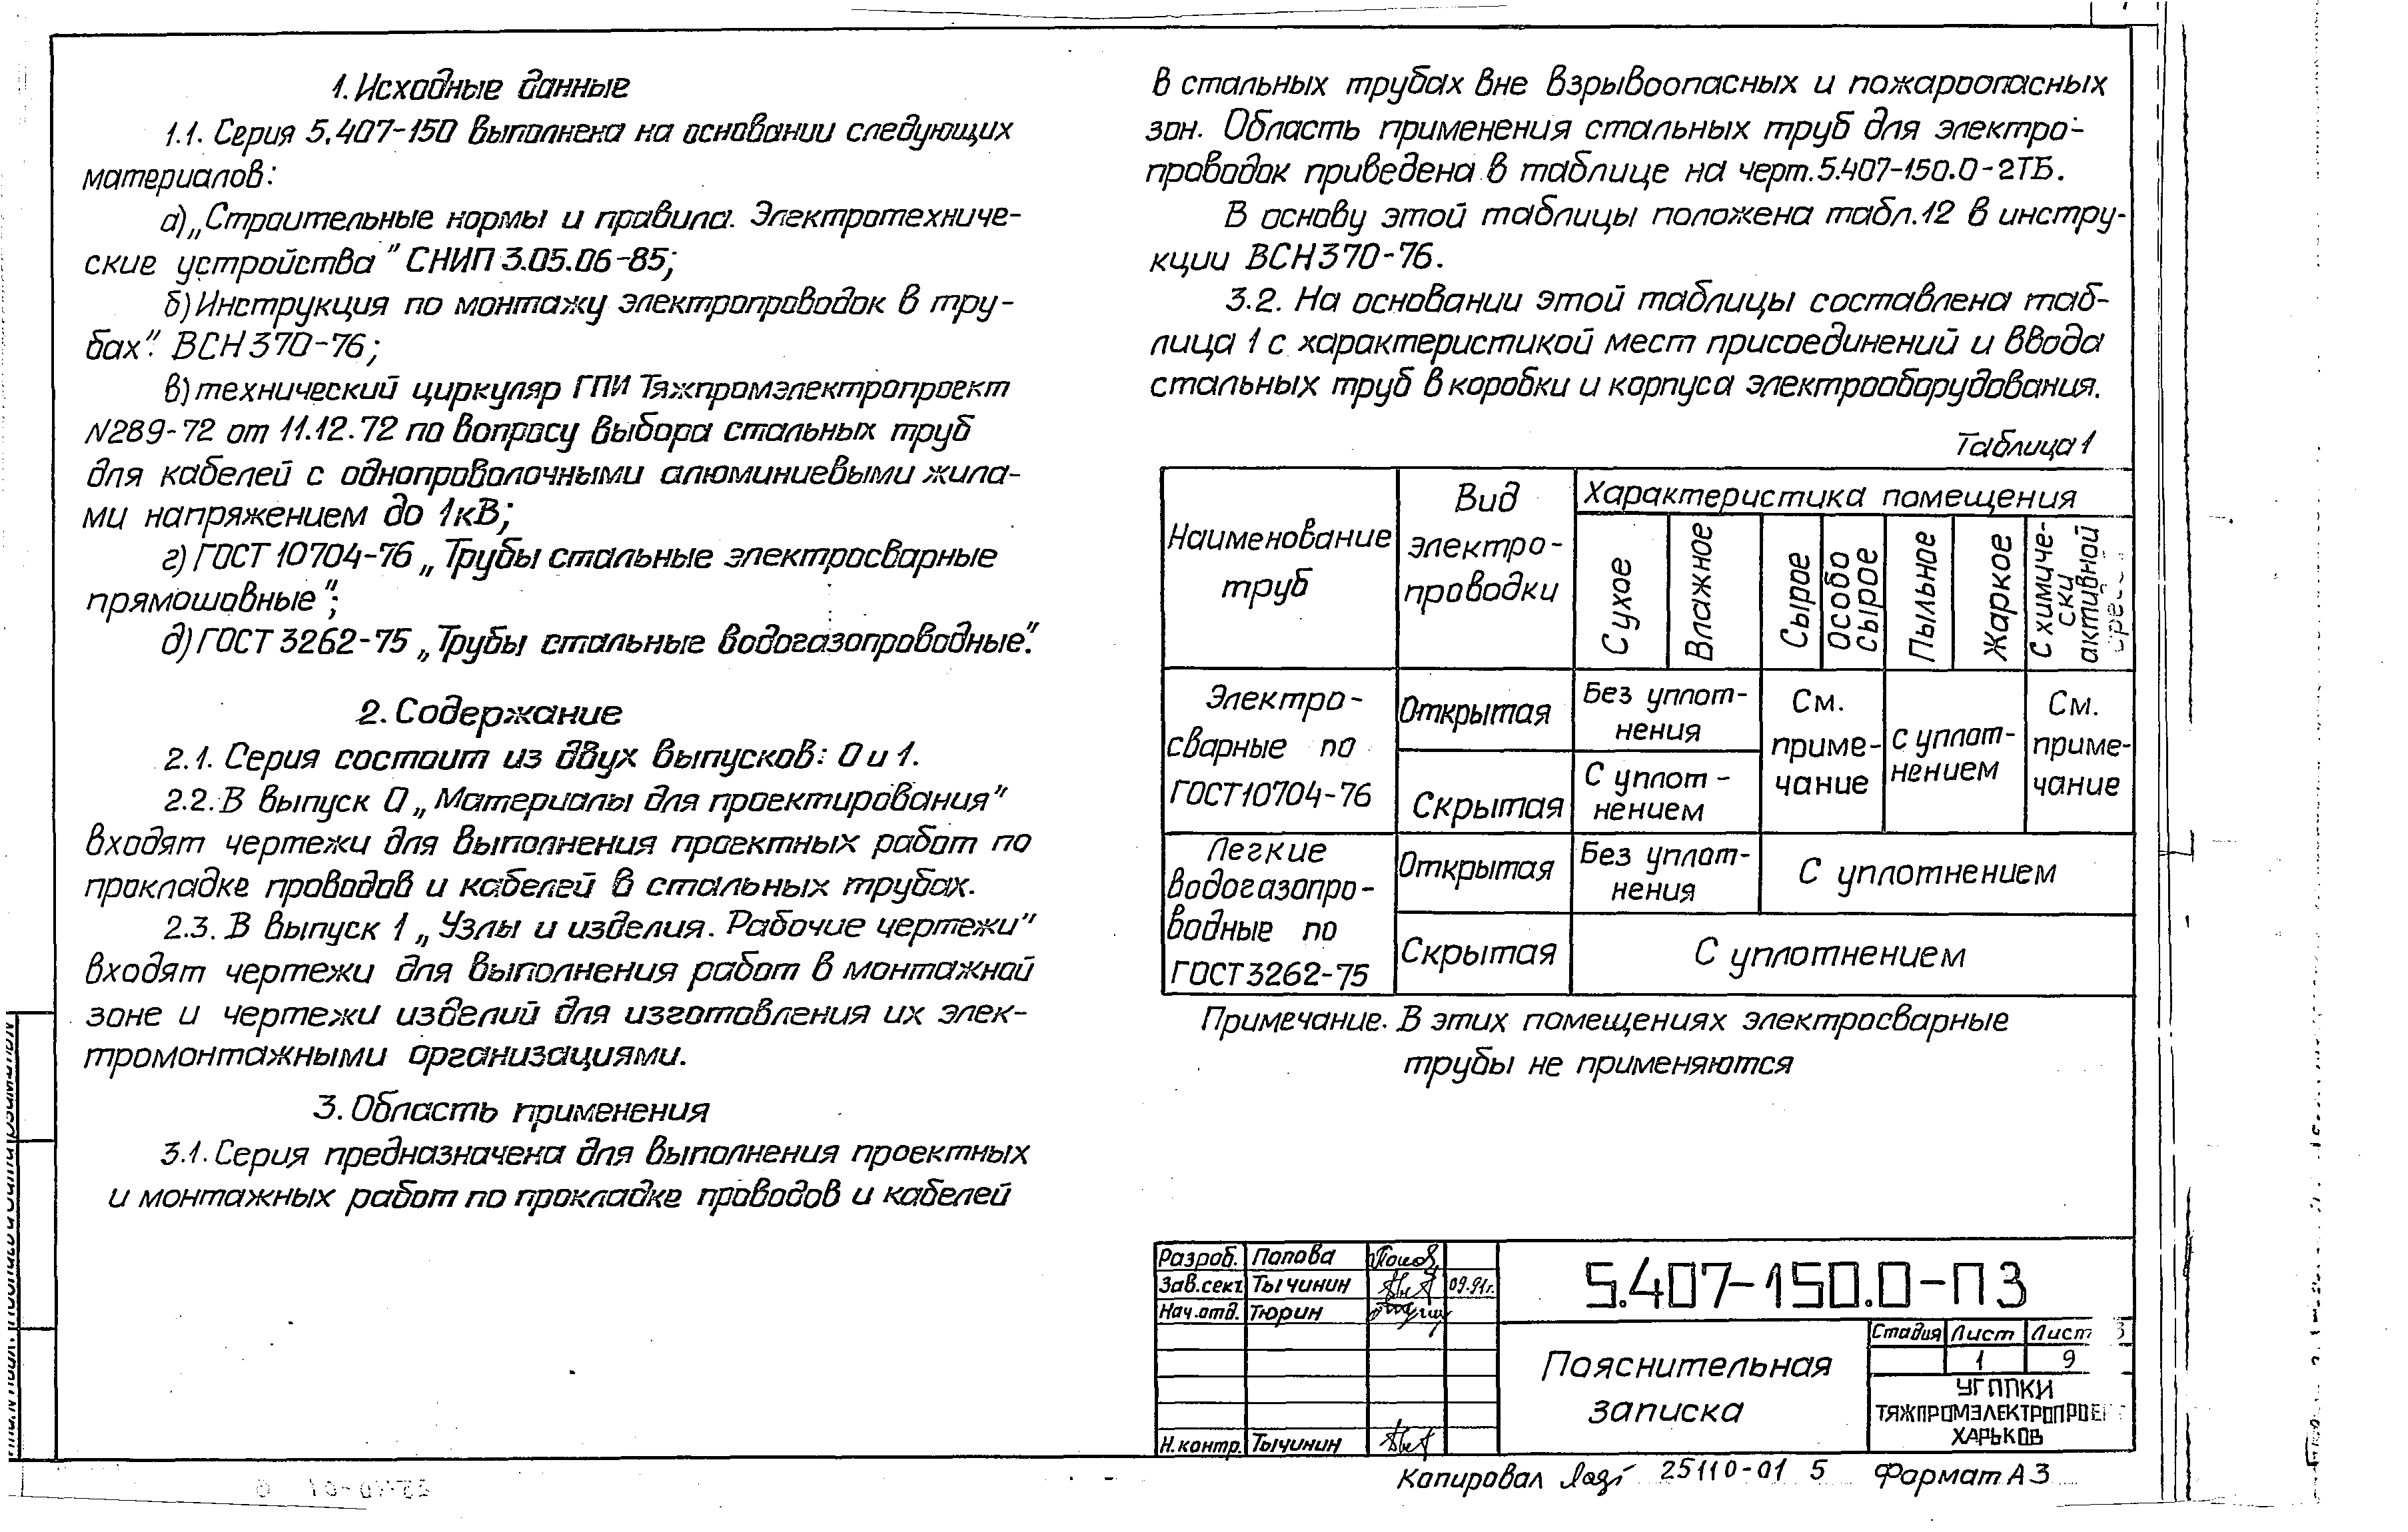 1. Исходные данные
1.1. Серия 5.407-150 выполнена на основании следующих
материалов:
а) „Строительные нормы и правила. Электротехниче-
ские устройства" СНИП 3.05.06-85;
б) Инструкция по монтажу электропроводок в тру-
бах". ВСН 370-76;
в) технический циркуляр ГПИ Тяжпромэлектропроект
N289-72 от 11.12.72 по вопросу выбора стальных труб
для кабелей с однопроволочными алюминиевыми жила-
ми напряжением до 1кВ;
г) ГОСТ 10704-76 „Трубы стальные электросварные
прямошовные";
д) ГОСТ 3262-75 „Трубы стальные водогазопроводные".
2. Содержание
2.1. Серия состоит из двух выпусков: 0 и 1.
2.2. В выпуск 0 „Материалы для проектирования"
входят чертежи для выполнения проектных работ по
прокладке проводов и кабелей в стальных трубах.
2.3. В выпуск 1 „Узлы и изделия. Рабочие чертежи"
входят чертежи для выполнения работ в монтажной
зоне и чертежи изделий для изготовления их элек-
тромонтажными организациями.
3. Область применения
3.1. Серия предназначена для выполнения проектных
и монтажных работ по прокладке проводов и кабелей
в стальных трубах вне взрывоопасных и пожароопасных
зон. Область применения стальных труб для электро-
проводок приведена в таблице на черт. 5.407-150.0-2ТБ.
В основу этой таблицы положена табл. 12 в инстру-
кции ВСН 370-76.
3.2. На основании этой таблицы составлена таб-
лица 1 с характеристикой мест присоединений и ввода
стальных труб в коробки и корпуса электрооборудования.
Таблица 1
Наименование
труб
Вид
электро-
проводки
Характеристика помещения
Сухое
Влажное
Сырое
Особо
сырое
Пыльное
Жаркое
С химиче-
ски
активной
Электро-
сварные по
ГОСТ 10704-76
Открытая
Без уплот-
нения
Скрытая
С уплот-
нением
См.
приме-
чание
с уплот-
нением
См.
приме-
чание
Легкие
водогазопро-
водные по
ГОСТ 3262-75
Открытая
Без уплот-
нения
С уплотнением
Скрытая
С уплотнением
Примечание. В этих помещениях электросварные
трубы не применяются
Разраб. Попова
Зав.сект. Тычинин 09.91г.
Нач.отд. Тюрин
Н.контр. Тычинин
5.407-150.0-ПЗ
Пояснительная
записка
Стадия Лист
1 9
УГППКИ
ТЯЖПРОМЭЛЕКТРОПРОЕ
ХАРЬКОВ
Копировал 25110-01 5 Формат А3